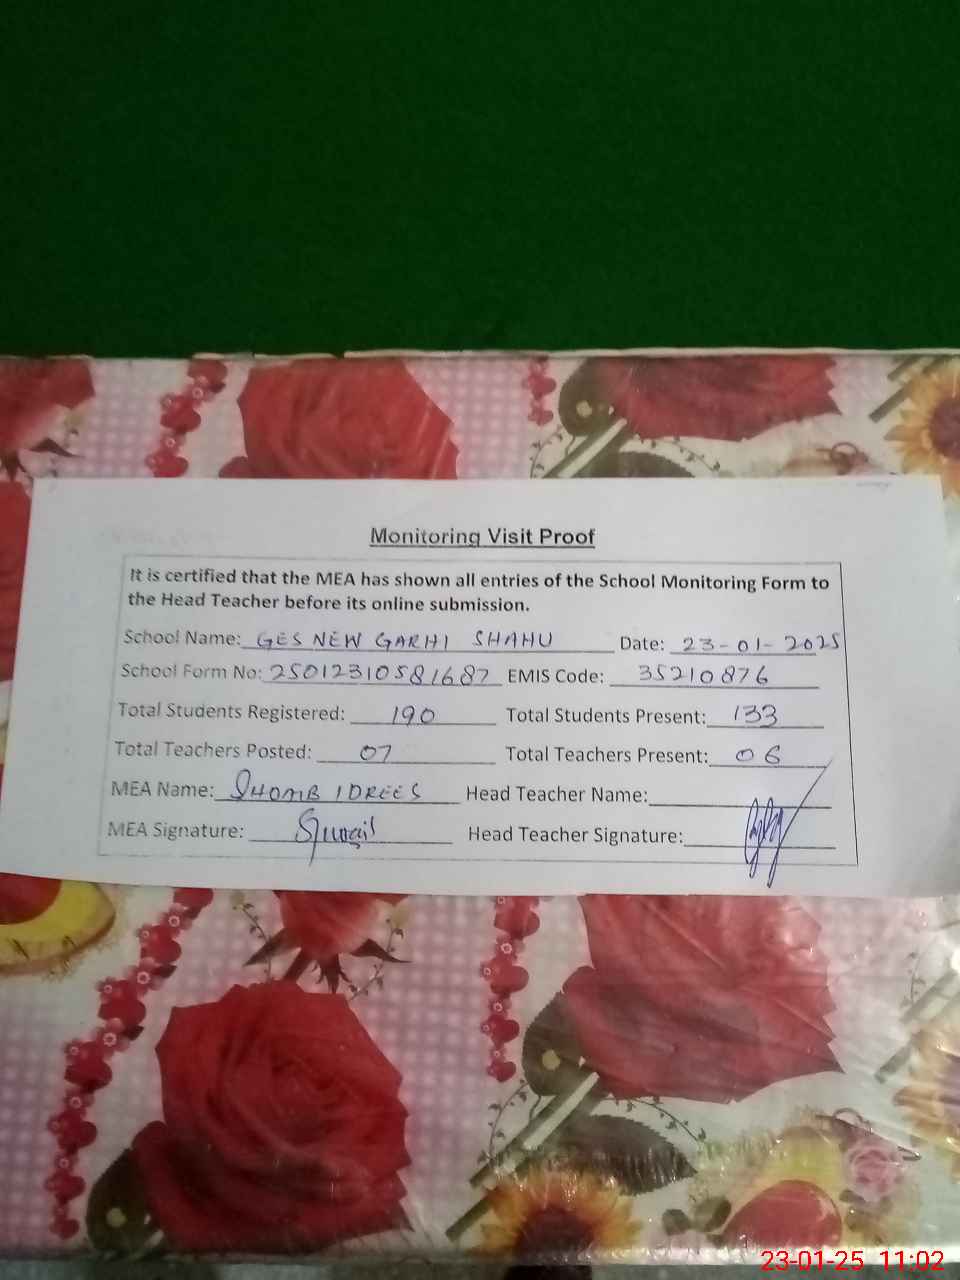 Monitoring Visit Proof
It is certified that the MEA has shown all entries of the School Monitoring Form to
the Head Teacher before its online submission.
School Name: GES NEW GARHI SHAHU Date: 23-01-2025
School Form No: 25012310581687 EMIS Code: 35210876
Total Students Registered: 190 Total Students Present: 133
Total Teachers Posted: 07 Total Teachers Present: 06
MEA Name: IDREES Head Teacher Name:
MEA Signature: Head Teacher Signature:
23-01-25 11:02